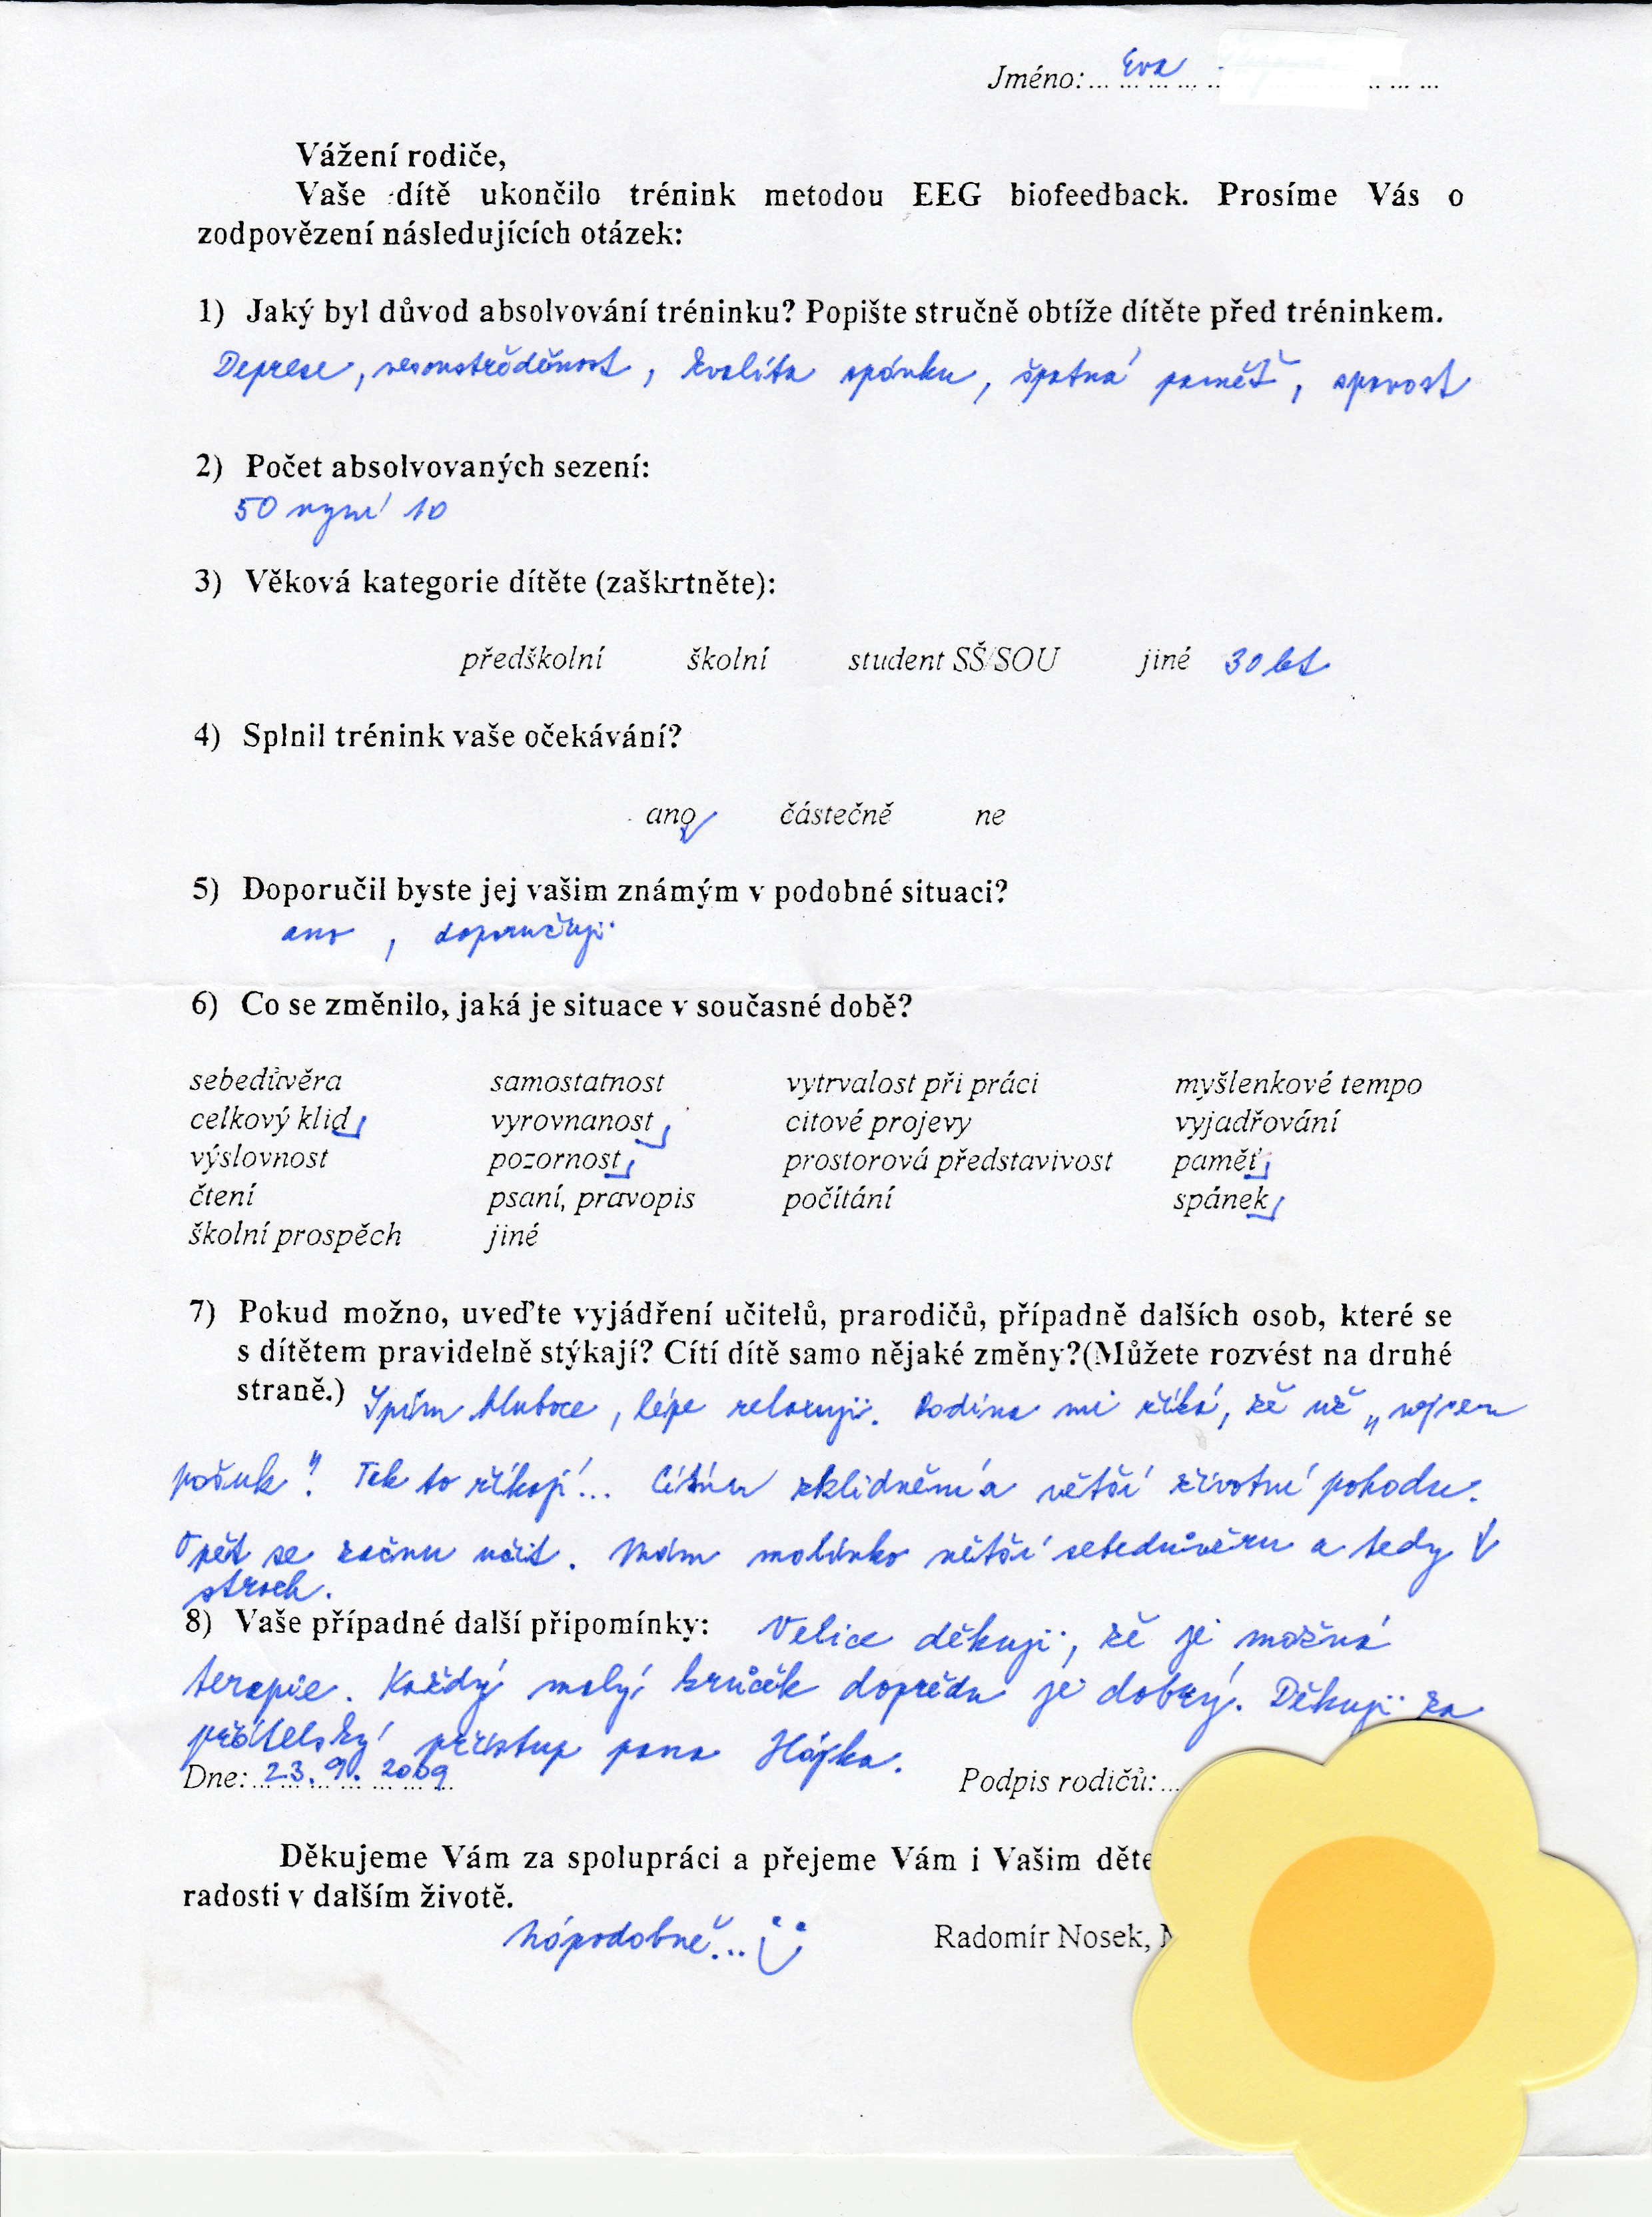 Jméno: ... Eva
Vážení rodiče,
Vaše dítě ukončilo trénink metodou EEG biofeedback. Prosíme Vás o
zodpovězení následujících otázek:
1) Jaký byl důvod absolvování tréninku? Popište stručně obtíže dítěte před tréninkem.
Deprese, , kvalita spánku, špatná paměť, spavost
2) Počet absolvovaných sezení:
50 nyní 10
3) Věková kategorie dítěte (zaškrtněte):
předškolní školní student SŠ/SOU jiné 30 let
4) Splnil trénink vaše očekávání?
ano částečně ne
5) Doporučil byste jej vašim známým v podobné situaci?
ano, doporučuji
6) Co se změnilo, jaká je situace v současné době?
sebedůvěra samostatnost vytrvalost při práci myšlenkové tempo
celkový klid vyrovnanost citové projevy vyjadřování
výslovnost pozornost prostorová představivost paměť
čtení psaní, pravopis počítání spánek
školní prospěch jiné
7) Pokud možno, uveďte vyjádření učitelů, prarodičů, případně dalších osob, které se
s dítětem pravidelně stýkají? Cítí dítě samo nějaké změny?(Můžete rozvést na druhé
straně.) Spím hluboce, lépe relaxuji. Rodina mi říká, že už „nejsem
pošuk". Tak to říkají... Cítím zklidnění a větší životní pohodu.
Opět se začnu učit. Mám malinko větší sebedůvěru a tedy ↓
strach.
8) Vaše případné další připomínky: Velice děkuji, že je možná
terapie. Každý malý krůček dopředu je dobrý. Děkuji za
přátelský přístup pana Hájka.
Dne: 23. 9. 2009 Podpis rodičů:...
Děkujeme Vám za spolupráci a přejeme Vám i Vašim děte
radosti v dalším životě.
nápodobně... Radomír Nosek,